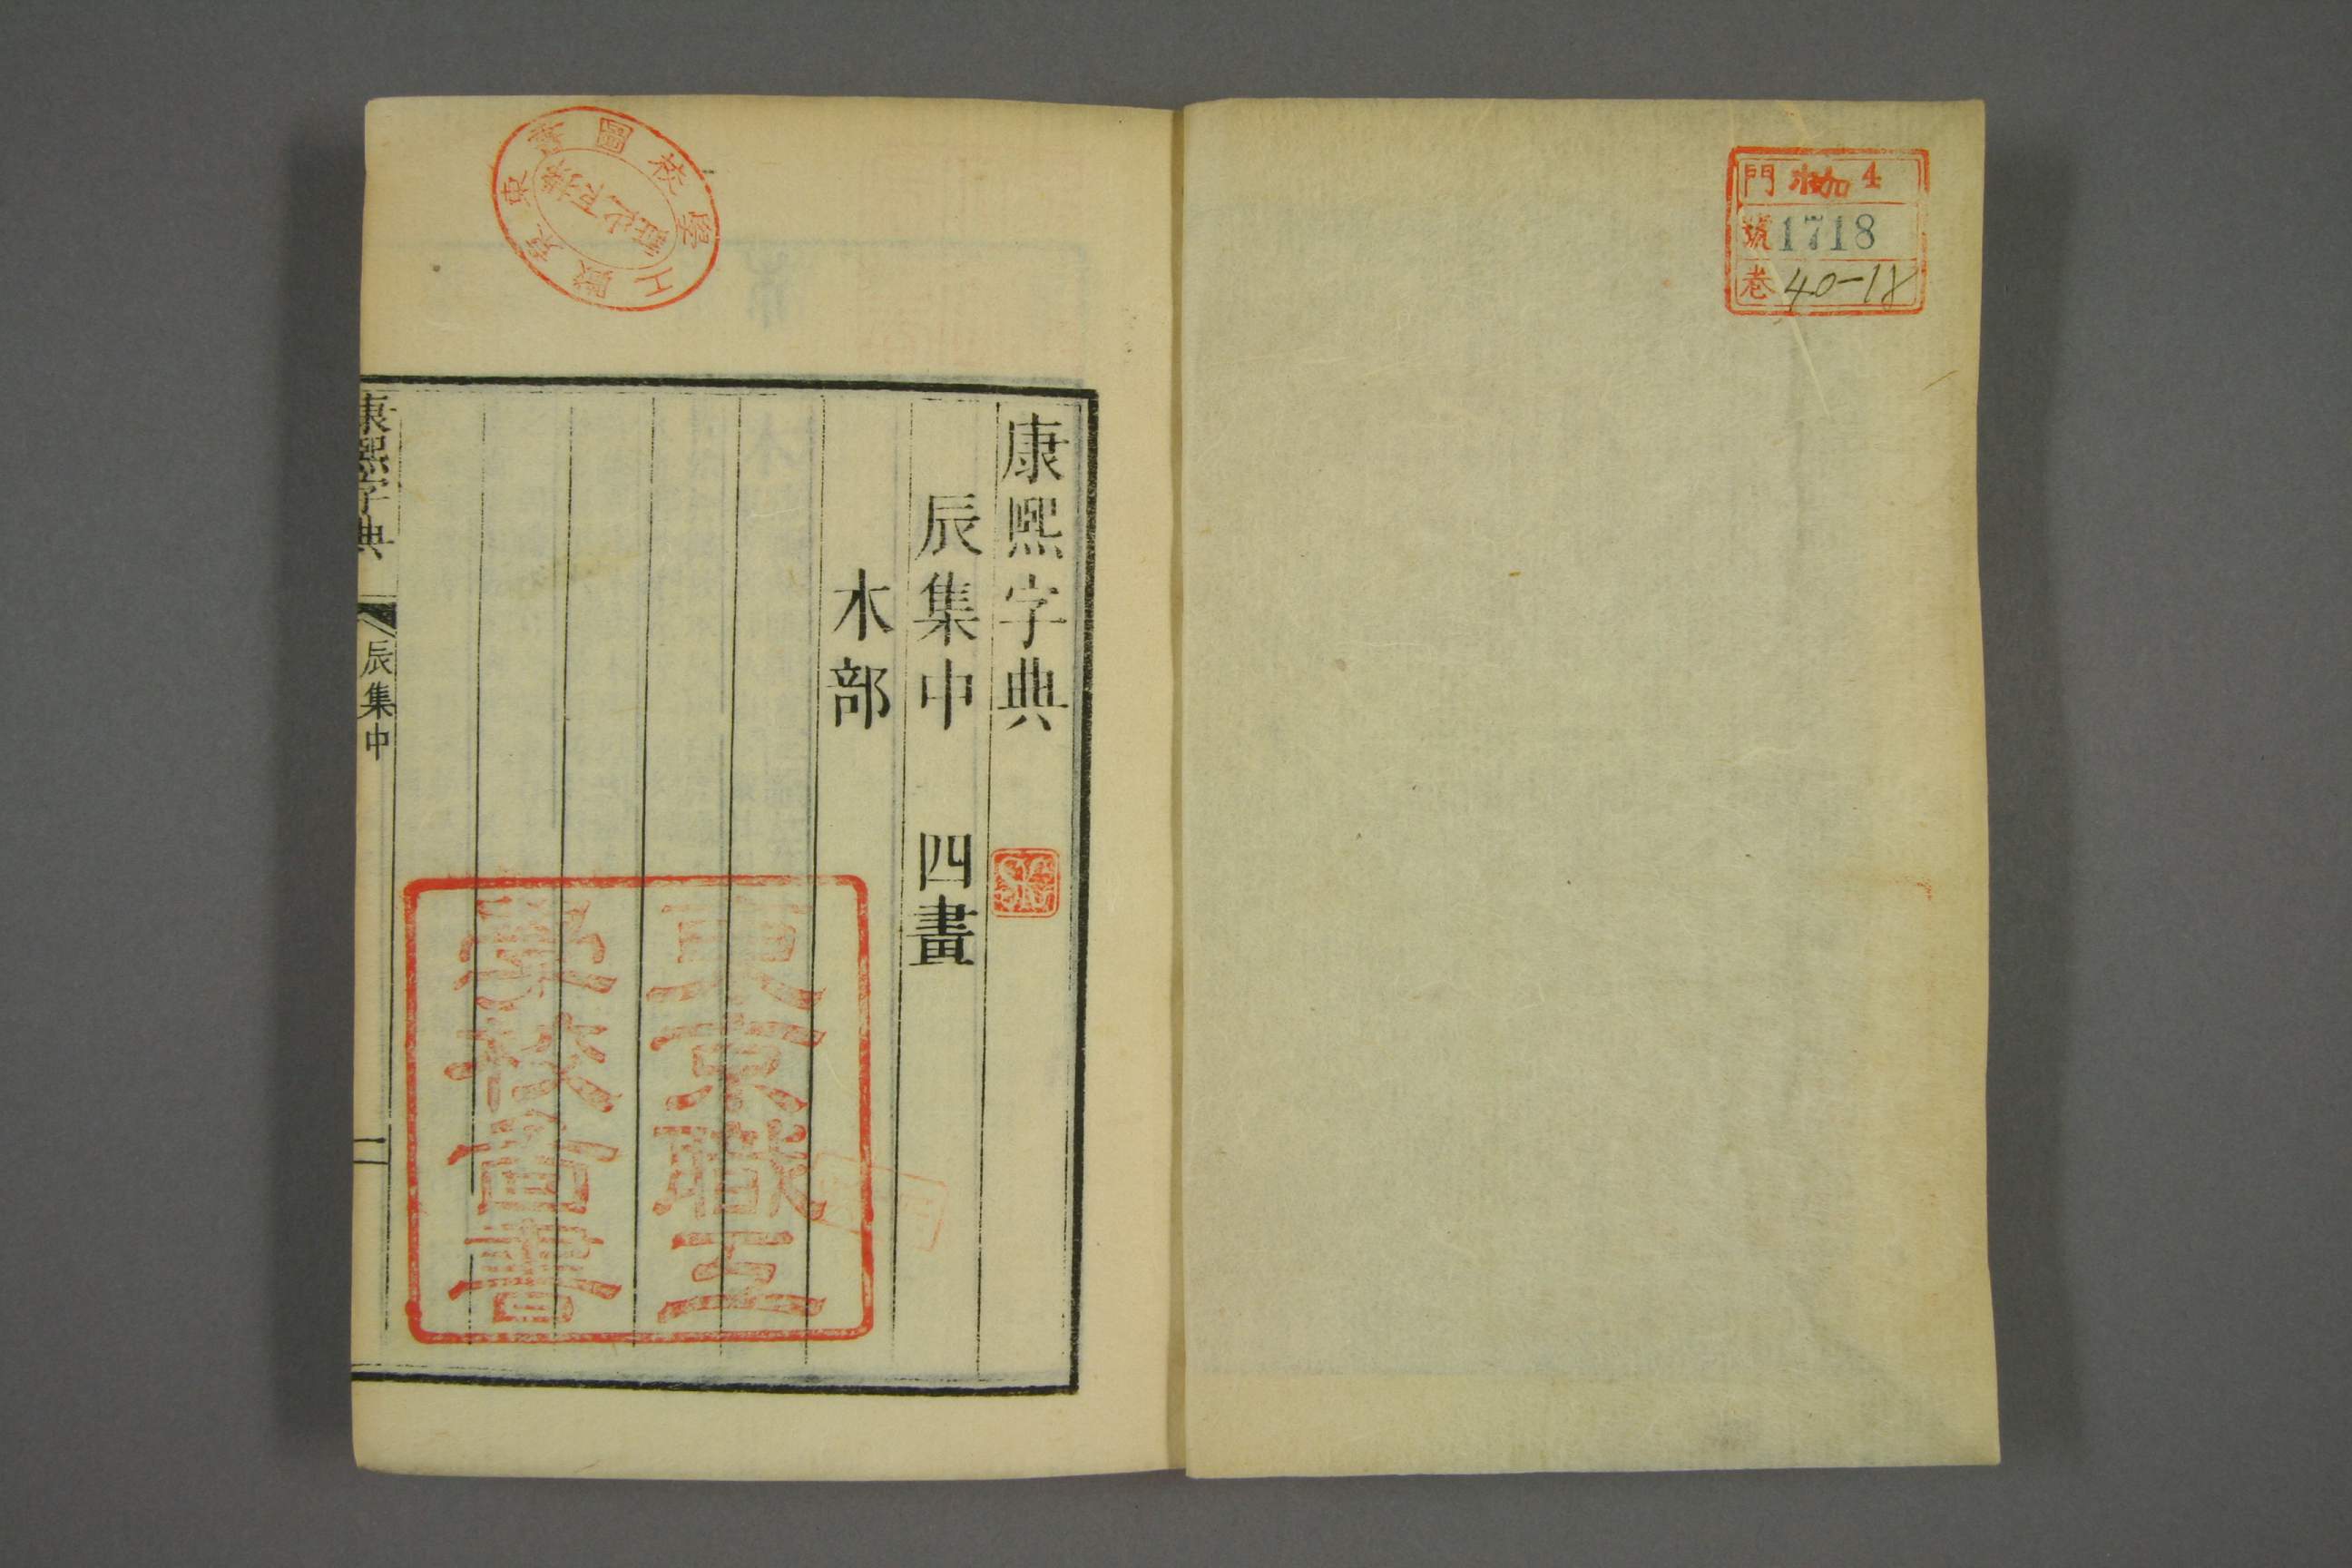 門 4
號 1718
巻 40-18
康熙字典
辰集中 四畫
木部
東京職工
學校啚書
康熙字典
辰集中
一